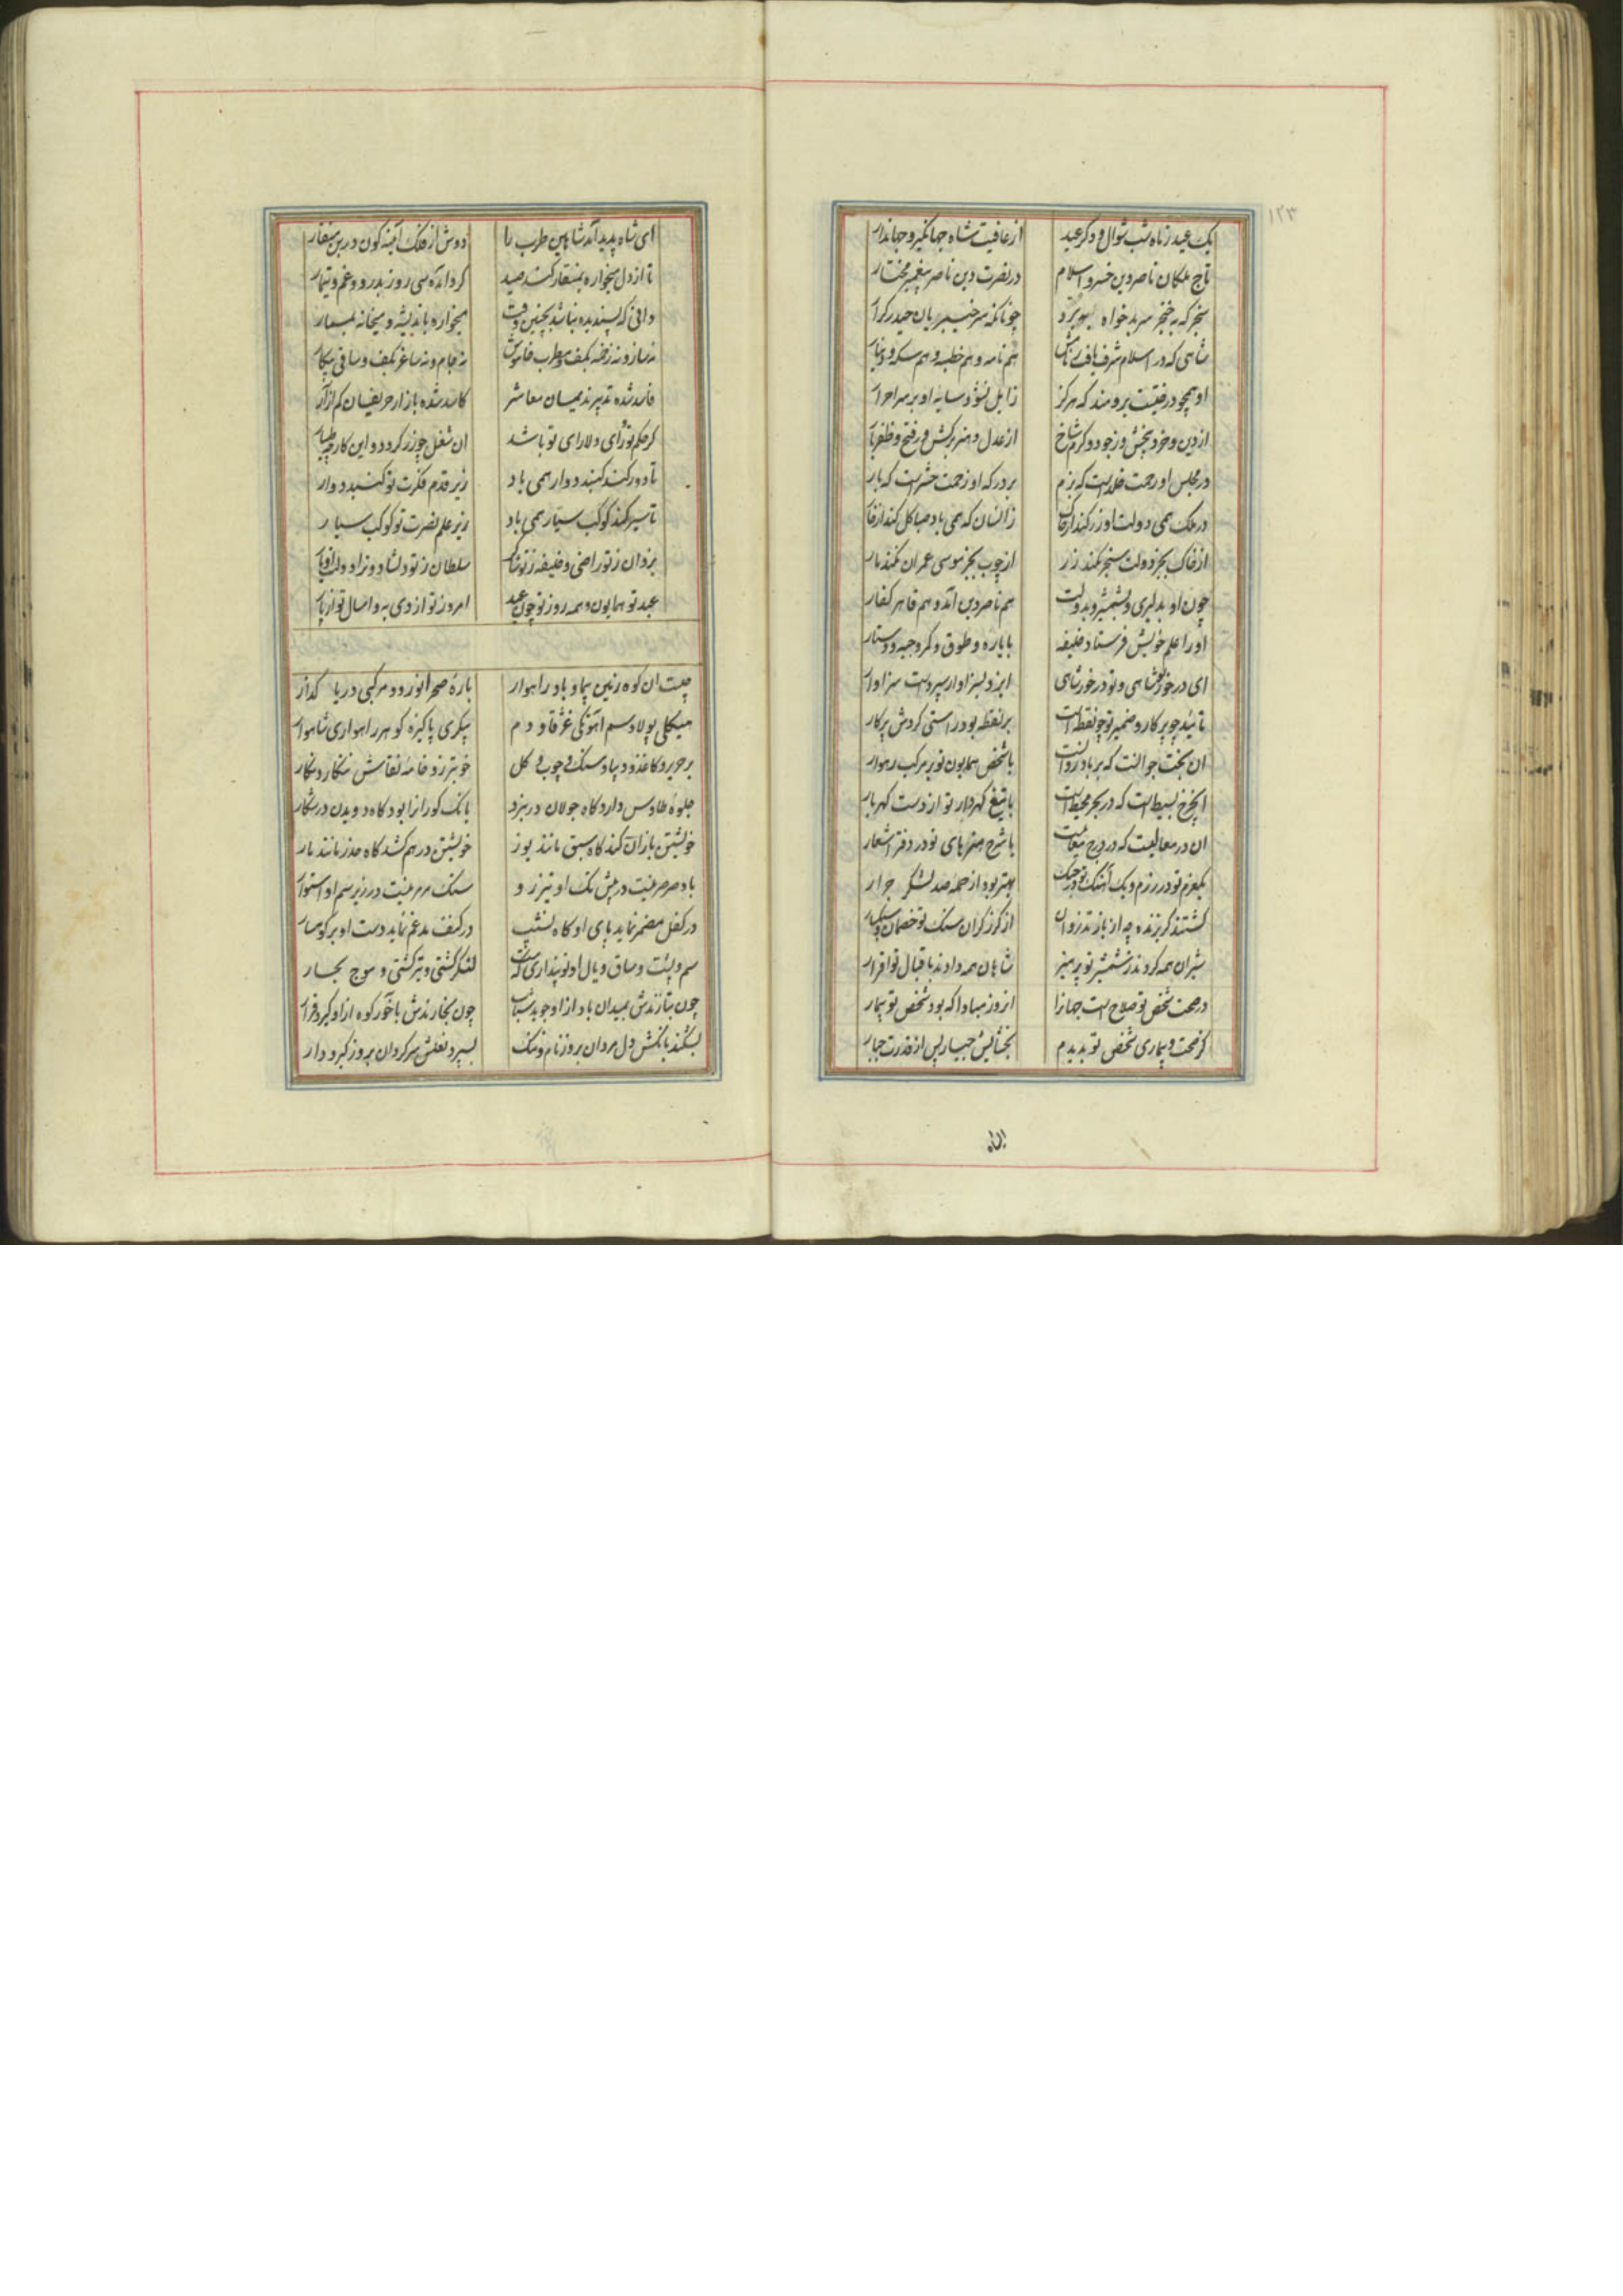 ۱۲۳
یک عید ز ماه شب شوال و دکر عید از عافیت شاه جهانکیر و جهاندار
تاج ملکان ناصر دین خسرو اسلام در نصرت دین ناصر پیغمبر مختار
سنجر که به خنجر سر بدخواه ببرد چونانکه سر خیبریان حیدر کرار
شاهی که در اسلام شرف یافت ز نامش هم نامه و هم خطبه و هم سکه و دینار
او همچو درختیست برومند که هرکز زایل نشود سایه او بر سر احرار
از دین و خرد بیخش و ز جود و کرم شاخ از عدل و هنر برکش و ز فتح و ظفر بار
در مجلس او رحمت خلد است که بزم بر درکه او زحمت حشر است که بار
در ملک همی دولت او زر کند از خاک زانسان که همی باد صبا کل کند از خار
از خاک بجز دولت سنجر نکند زر از چوب بجز موسی عمران نکند مار
چون او بدلیری و بشمشیر و بدولت هم ناصر دین آمد و هم قاهر کفار
او را علم خویش فرستاد خلیفه با یاره و طوق و کمر و جبه و دستار
ای در خور تو شاهی و تو در خور شاهی ایزد بسزاوار سپردست سزاوار
تائید چو پرکار و ضمیر تو چو نقطه است بر نقطه بود راستی کردش پرکار
ان بخت جوانست که بر باد روانست یا شخص همایون تو بر مرکب رهوار
این چرخ بسیط است که در بحر محیط است یا تیغ کهردار تو از دست کهربار
ان در معالیست که در درج معانیست یا شرح هنرهای تو در دفتر اشعار
یک عزم تو در رزم و یک آهنک تو در جنک بهتر بود از حمله صد لشکر جرار
کشتند کریزنده چو از باز تذروان از کرز کران سنک تو خصمان سبکسار
شیران همه کردند ز شمشیر تو پرهیز شاهان همه دادند باقبال تو اقرار
در صحت شخص تو صلاح است جهانرا آن روز مبادا که بود شخص تو بیمار
کر صحت و بیماری شخص تو بدیدم بخشایش جبار پس از قدرت جبار
ای شاه
ای شاه پدید آمد شاهین طرب را دوش از فلک آینه کون زرین منقار
تا از دل میخواره بمنقار کند صید کرد آمده سی روز بدرد و غم و تیمار
دانی که پسندیده نباشد بچنین وقت میخواره باندیشه و میخانه بمسمار
نه ساز و نه زخمه بکف مطرب خاموش نه جام و نه ساغر بکف ساقی بیکار
فاسد شده تدبیر ندیمان معاشر کاسد شده بازار حریفان کم آزار
کر حکم تو و رای دلارای تو باشد ان شغل چو زر کردد و این کار چو طیار
تا دور کند کنبد دوار همی باد زیر قدم فکرت تو کنبد دوار
تا سیر کند کوکب سیار همی باد زیر علم نصرت تو کوکب سیار
یزدان ز تو راضی و خلیفه ز تو شاکر سلطان ز تو دلشاد و تو از دولت او یار
عید تو همایون و همه روز تو چون عید امروز تو از دی به و امسال تو از پار
چیست ان کوه زمین پیما و باد راهوار بارهٔ صحرا نورد و مرکبی دریا کذار
هیکلی پولاد سم آهوتکی غژقاو دم پیکری پاکیزه کوهر راهواری شاهوار
بر حریر و کاغذ و دیبا و سنک و چوب و کل خوبتر زو خامهٔ نقاش ننکارد نکار
جلوهٔ طاوس دارد کاه جولان در نبرد بانک کوران را بود کاه دویدن در شکار
خویشتن یازان کند کاه سبق مانند یوز خویشتن در هم کشد کاه حذر مانند مار
باد صرصر نیست در پیش تک او تیز رو سنک مرمر نیست در زیر سم او استوار
در کفل مضمر نماید پای او کاه نشیب در کتف مدغم نماید دست او بر کوهسار
سم و پشت و ساق و یال او تو پنداری که هست لنکر کشتی و تیر کشتی و موج بحار
چون بتازندش بمیدان باد از او جوید شتاب چون بخارندش باخر کوه از او کیرد قرار
بشکند بانکش دل مردان بروز نام و ننک بسپرد نعلش سر کردان بروز کیر و دار